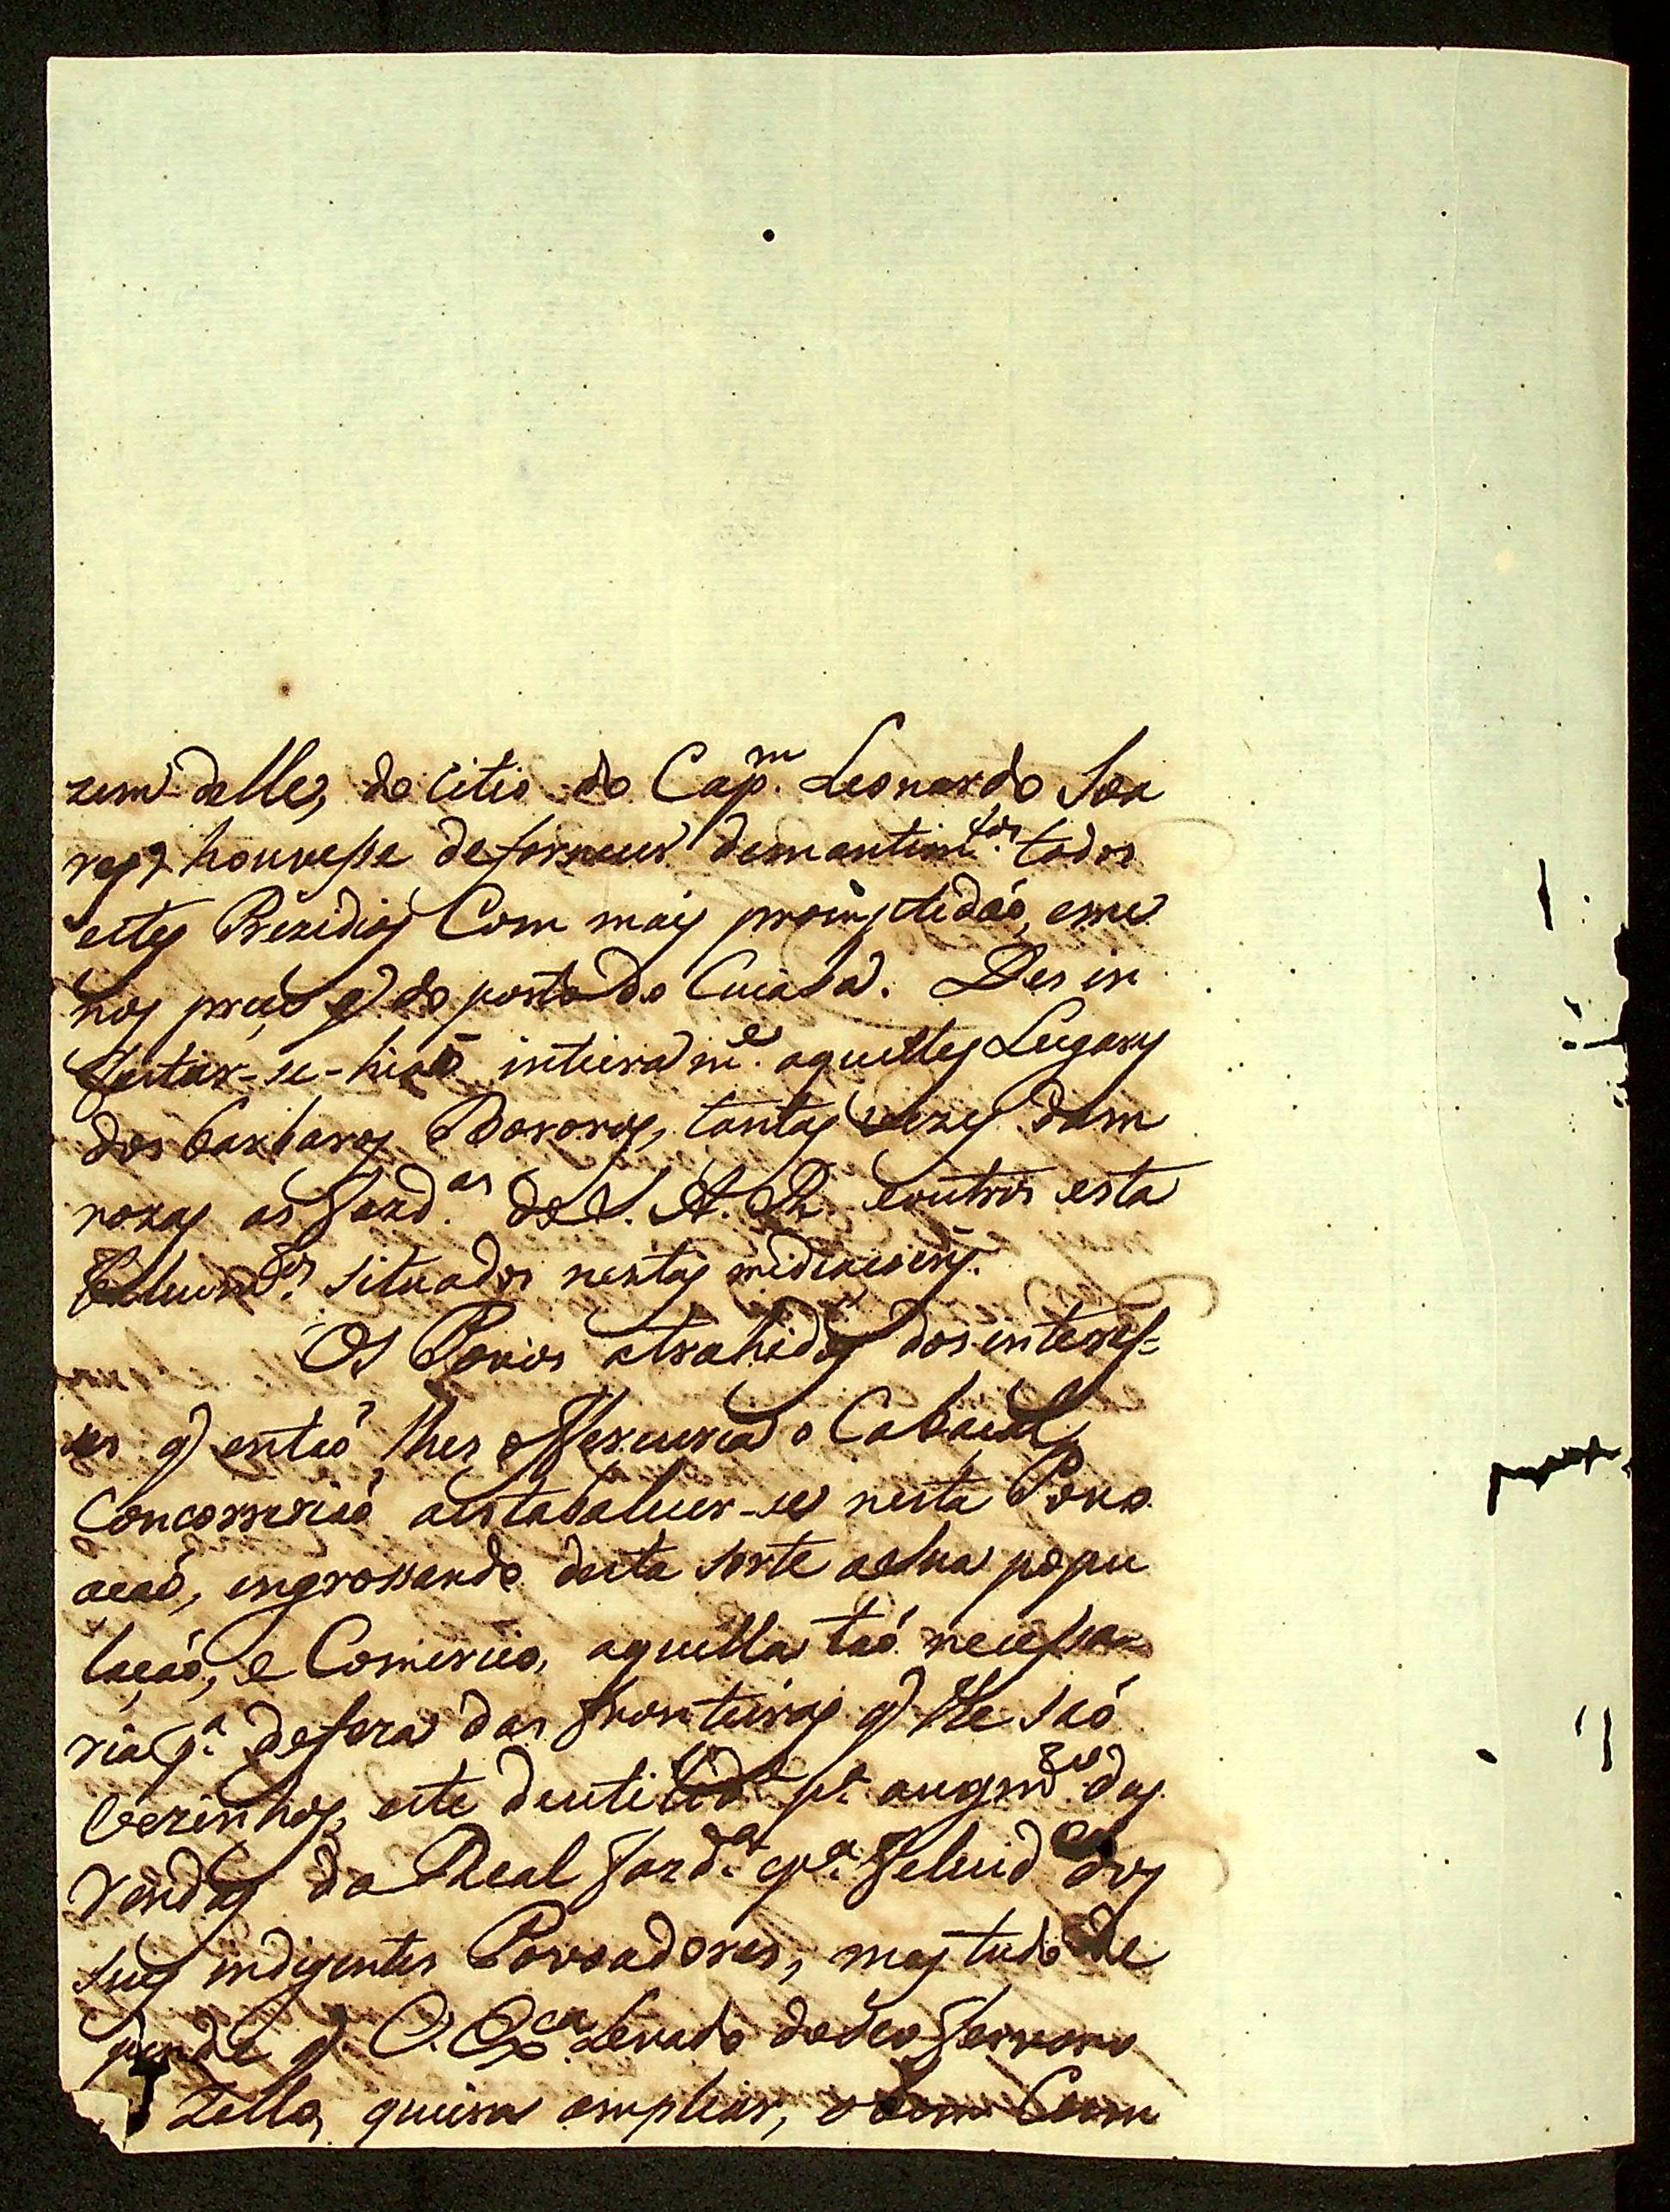 zem delle, do citio do Cap.m Leonardo Soa
res q houvesse de fornecer demantim.tos todos
estes Prezidios Com mais promptidaõ, eme
nos preço q do porto do Cuiaba. Des in
festar-se-hiaõ inteiram.e aquelles Lugares
dos barbaros Bororos, tantas vezes dam
nozas as fazd.as de S. A. R. eoutros esta
bellecim.tos situados nestas
Os Povos atrahidos dos interes=
ses q entaõ lhes offerecera o Cabaçal,
Concorreriaõ aestabalecer-se nesta Povo
acaõ, engrossando desta sorte asua popu
lacaõ, e Comercio, aquella taõ necessa
ria p.a defeza das fronteiras q lhe saõ
vezinhos, este deutilid.e p.a augm.to das
rendas da Real fazd.a ep.a felicid.e dos
seus indigentes Povoadores, mas tudo de
pende q V. Ex.ca Levado doseo fervoro
Zello, queira ampliar, o bom Com